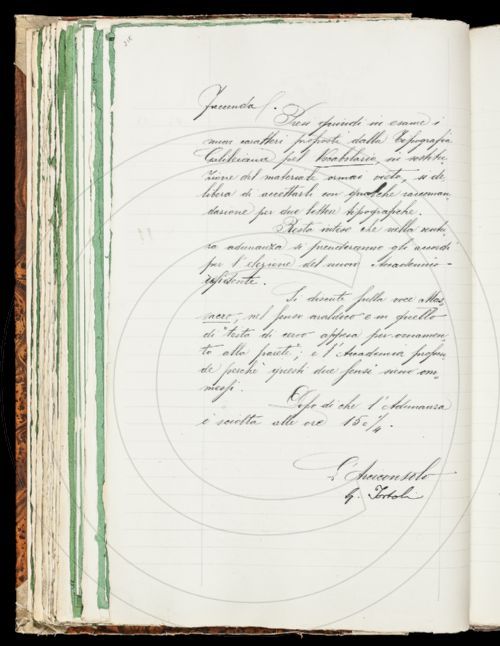 faccenda.
Presi quindi in esame i
nuovi caratteri proposti dalla Tipografia
Galileiana pel Vocabolario, in sostitu-
zione del materiale ormai vieto, si de-
libera di accettarli con qualche raccoman-
dazione per due lettere tipografiche.
Resta inteso che nella ventu-
ra adunanza si prenderanno gli accordi
per l'elezione del nuovo Accademico
residente.
Si discute sulla voce Mas-
sacro, nel senso araldico e in quello
di "testa di cervo appesa per ornamen-
to alla parete"; e l'Accademia propen-
de perchè questi due sensi sieno om-
messi.
Dopo di che l'Adunanza
è sciolta alle ore 15 e 1/4.
L'Arciconsolo
G. Tortoli